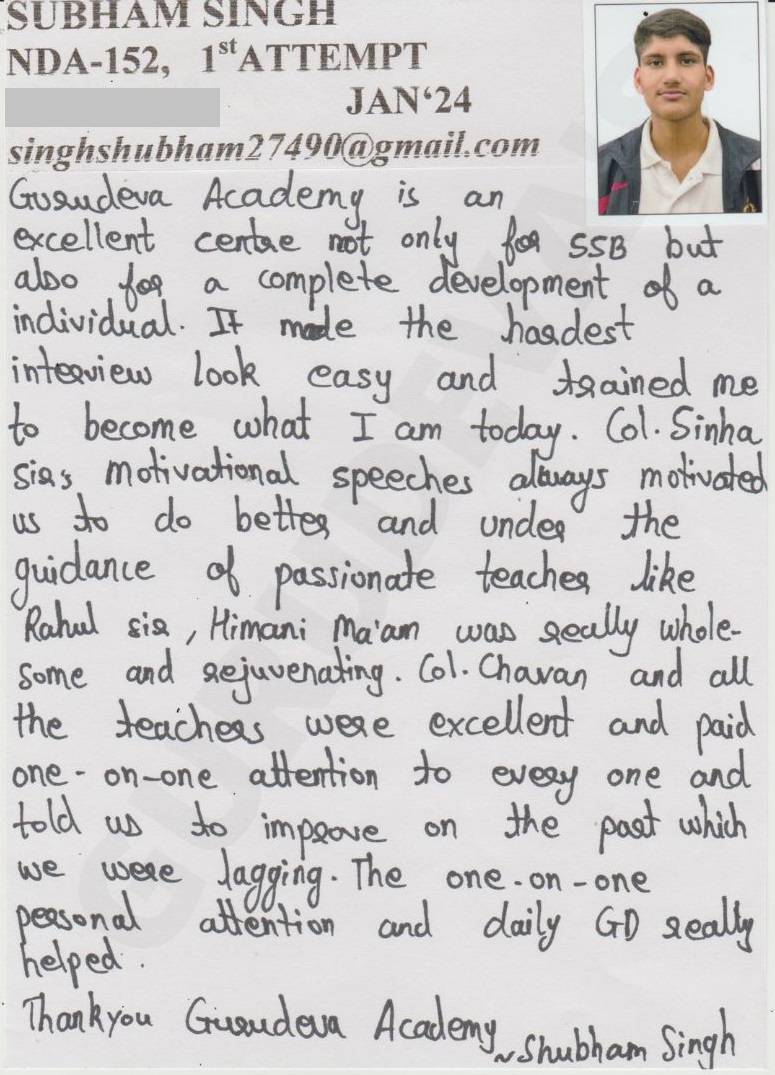 SUBHAM SINGH
NDA-152, 1st ATTEMPT
JAN‘24
singhshubham27490@gmail.com
Gurudeva Academy is an
excellent centre not only for SSB but
also for a complete development of a
individual. It made the hardest
interview look easy and trained me
to become what I am today. Col. Sinha
sirs motivational speeches always motivated
us to do better and under the
guidance of passionate teacher like
Rahul sir, Himani Ma'am was really whole-
some and rejuvenating. Col. Chavan and all
the teachers were excellent and paid
one-on-one attention to every one and
told us to improve on the part which
we were lagging. The one-on-one
personal attention and daily GD really
helped.
Thankyou Gurudeva Academy
~Shubham Singh